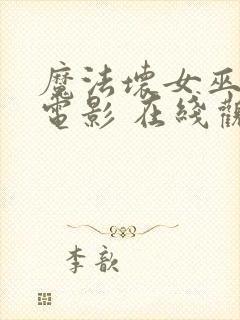 魔法壞女巫
電影 在綫觀
李歆